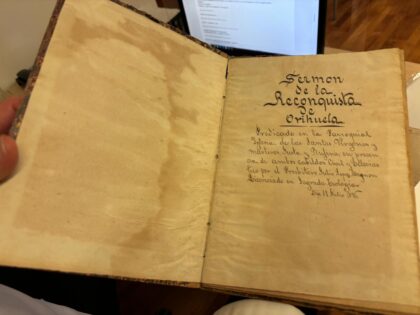 Sermon
de la
Reconquista
de
Orihuela
Predicado en la Parroquial
Iglesia de las Santas Virgenes y
mártires Justa y Rufina en presen
cia de ambos cabildos Cival y Eclesiás
tico por el Presbitero Julio
Licenciado en Sagrada Teologia
Dia 17 Julio